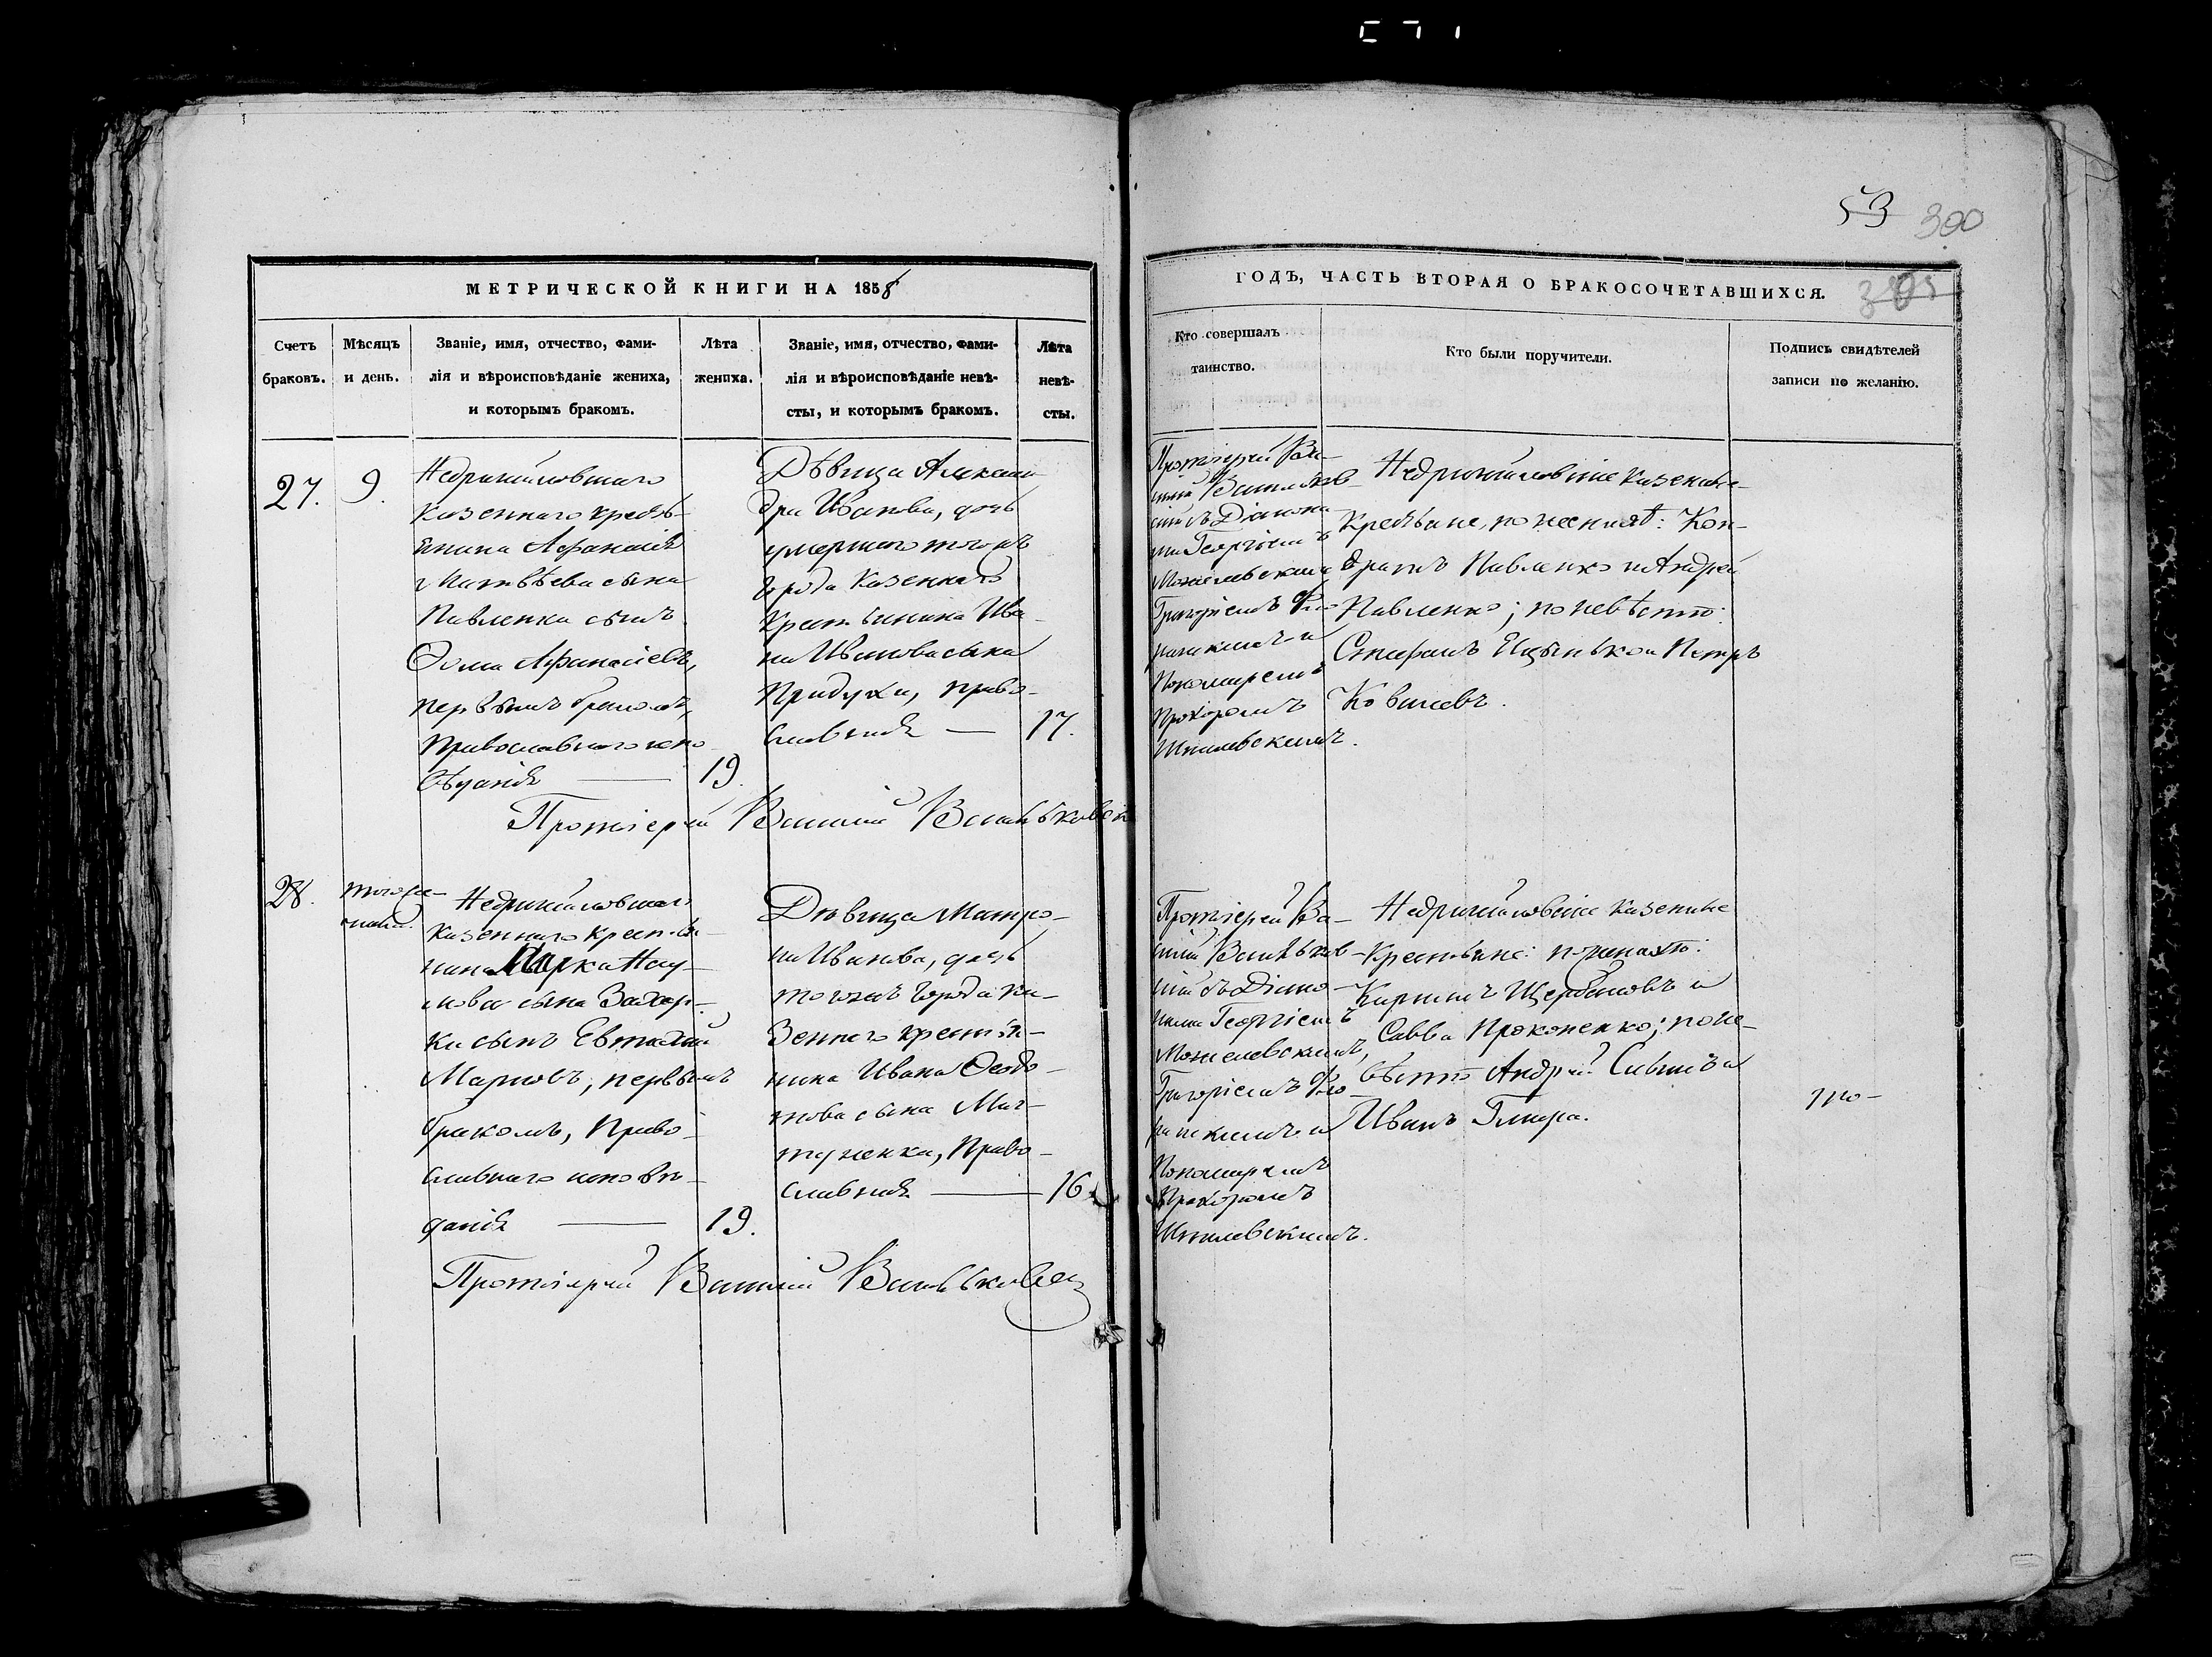 53 300
МЕТРИЧЕСКОЙ КНИГИ НА 1858
ГОДЪ, ЧАСТЬ ВТОРАЯ О БРАКОСОЧЕТАВШИХСЯ.
Счетъ
браковъ.
Мѣсяцъ
и день.
Званіе, имя, отчество, фами-
лія и вѣроисповѣданіе жениха,
и которымъ бракомъ.
Лѣта
жениха.
Званіе, имя, отчество, фами-
лія и вѣроисповѣданіе невѣ-
сты, и которымъ бракомъ.
Лѣта
невѣ-
сты.
Кто совершалъ
таинство.
Кто были поручители.
Подпись свидѣтелей
записи по желанію.
27.
9.
Недригайловскаго
казеннаго кресть-
янина Афанасія
Матвѣева сына
Павленка сынъ
Ѳома Афанасіевъ,
первымъ бракомъ,
православнаго испо-
вѣданія — 19.
Дѣвица Алексан-
дра Иванова, дочь
умершаго тогожъ
города казеннаго
крестьянина Ива-
на Иванова сына
Придухи, право-
славная — 17.
Протоіерей Ва-
силій Васильков-
скій съ Діакона-
ми Георгіемъ
Можелевскимъ
Григоріемъ Фло-
ринскимъ и
Пономаремъ
Прохоромъ
Шпилевскимъ.
Недригайловскіе казенные
крестьяне, по женихѣ: Кон-
дратъ Павленко и Андрей
Павленко; по невѣстѣ:
Стефанъ Ецынько и Петръ
Ковшевъ.
Протоіерей Василій Васильковск
28.
тогоже
числа.
Недригайловскаго
казеннаго крестья-
нина Марка Нау-
мова сына Захар-
ки сынъ Евтихій
Марковъ, первымъ
бракомъ, Право-
славнаго исповѣ-
данія — 19.
Дѣвица Матро-
на Иванова, дочь
тогожъ города ка-
зеннаго крестья-
нина Ивана Ѳедо-
това сына Мат-
туненка, Право-
славная — 16.
Протоіерей Ва-
силій Васильков-
скій съ Діако-
нами Георгіемъ
Можелевскимъ,
Григоріемъ Фло-
ринскимъ и
Пономаремъ
Прохоромъ
Шпилевскимъ.
Недригайловскіе казенные
крестьяне: по женихѣ:
Кириллъ Щербаковъ и
Савва Прокопенко; по не-
вѣстѣ Андрей и
Иванъ Гмыра.
по-
Протоіерей Василій Васильковск